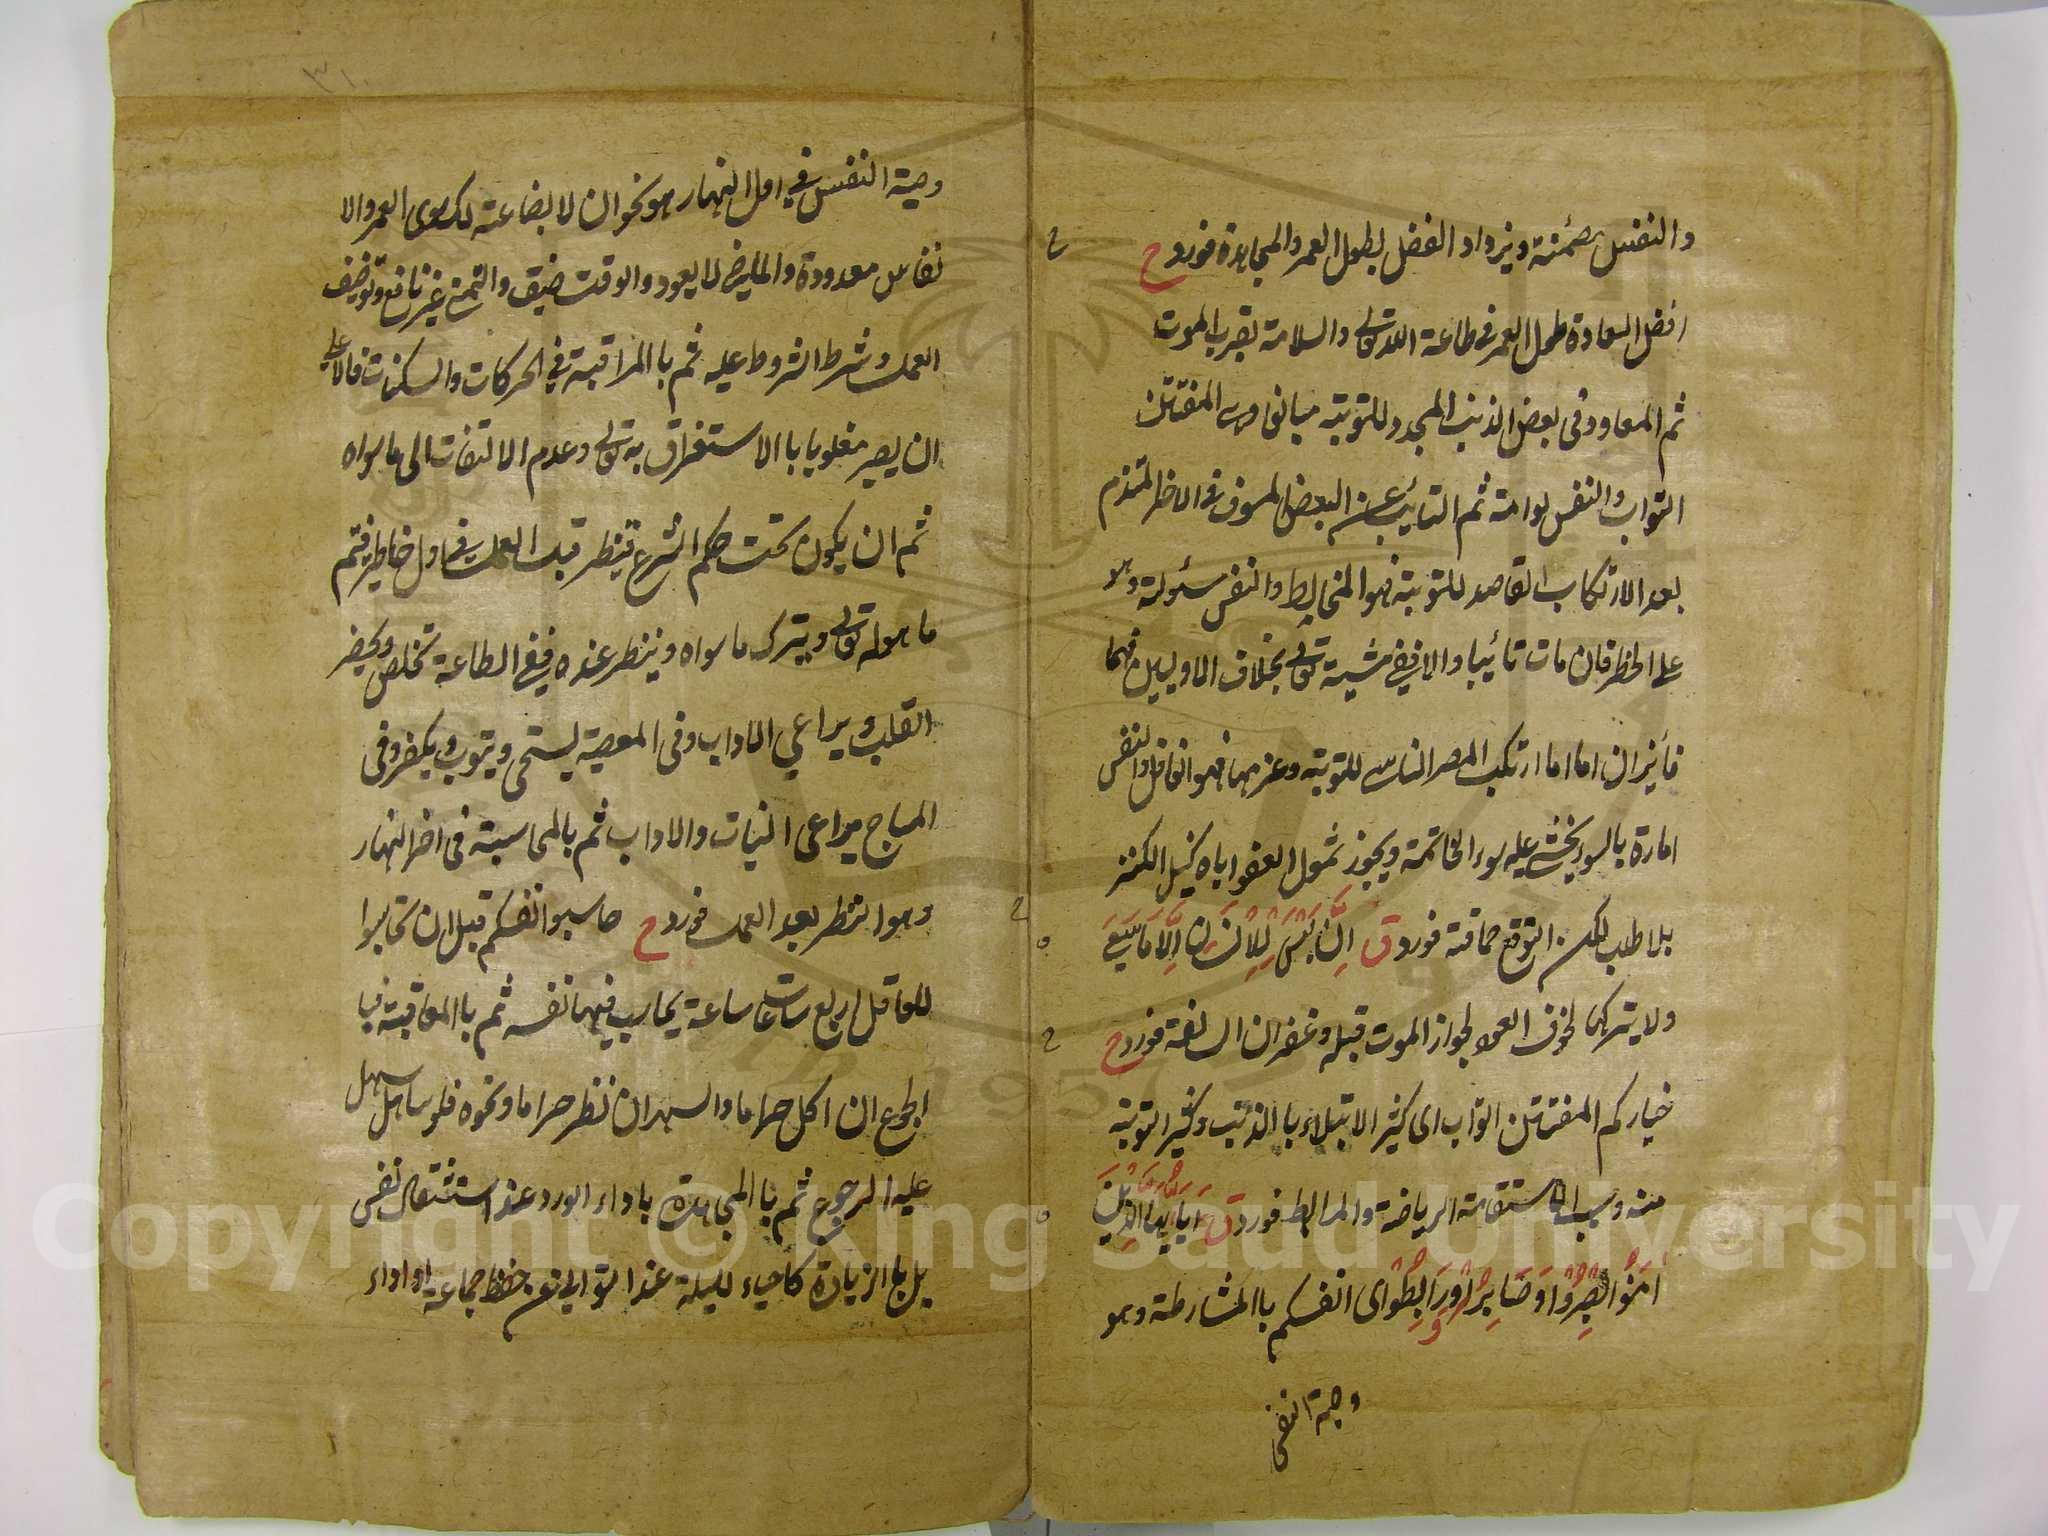 والنفس مطمئنة ويزداد الفضل بطول العمر والمجاهدة فورد ح
افضل السعادة طول العمر فى طاعة الله تعالى والسلامة بقرب الموت
ثم المعاود فى بعض الذنب المجدد للتوبة المفتتن
التواب والنفس لوامة ثم التايب عن البعض المسوف فى الاخر المتندم
بعد الارتكاب القاصد للتوبة فهو المخالط والنفس مسئولة وهو
على الخطر فان مات تائبا والا ففى مشية تعالى بخلاف الاوليين فهما
فائزان اما ارتكب المصر الناسى للتوبة وعزمها فهو الغافل والنفس
امارة بالسوء يخشى عليه سوء الخاتمة ويجوز شمول العفو اياه كنيل الكنز
بلا طلب لكن التوقع حماقة فورد ق اِنْ لَيْسَ لِلْاِنْسَانِ اِلَّا مَا سَعَى
ولا يترك لخوف العود لجواز الموت قبله وغفران السالفة فورد ح
خياركم المفتتن التواب اى كثير الابتلاء بالذنب وكثير التوبة
منه وسبب الاستقامة الرياضة والمرابطة فورد ق يَا اَيُّهَا الَّذِينَ
اٰمَنُوا اصْبِرُوا وَصَابِرُوا وَرَابِطُوا اى انفسكم بالمشارطة وهو
وصية النفس
٣١٠
وصية النفس فى اول النهار هو نحو ان لا بضاعة لك سوى العمر والا
نفاس معدودة والماضى لا يعود والوقت ضيق والتمنى غير نافع
العمل وشرط الشروط عليه ثم بالمراقبة فى الحركات والسكنات فالاعلى
ان يصير مغلوبا بالاستغراق به تعالى وعدم الالتفات الى ما سواه
ثم ان يكون تحت حكم الشرع فينظر قبل العمل فى اول خاطر فيتم
ما هو له تعالى ويترك ما سواه وينظر عنده ففى الطاعة تخلص ويحضر
القلب ويراعي الاداب وفى المعصية يستحى ويتوب ويكفر وفى
المباح يراعى النيات والاداب ثم بالمحاسبة فى اخر النهار
وهو النظر بعد العمل فورد ح حاسبوا انفسكم قبل ان تحاسبوا
للعاقل اربع ساعات ساعة يحاسب فيها نفسه ثم بالمعاقبة فيا
لجوع ان اكل حراما والسهر ان نظر حراما ونحوه فلو ساهل سهل
عليه الرجوع ثم بالمجاهدة باداء الورد عند استثقال نفس
بل بالزيادة كاحياء لليلة عند التوانى عن حفظ جماعة او اداء